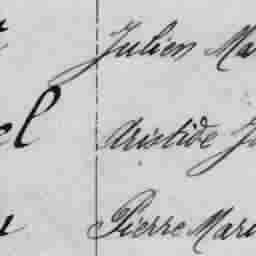 Julien Ma
el Aristide J
Pierre Mari